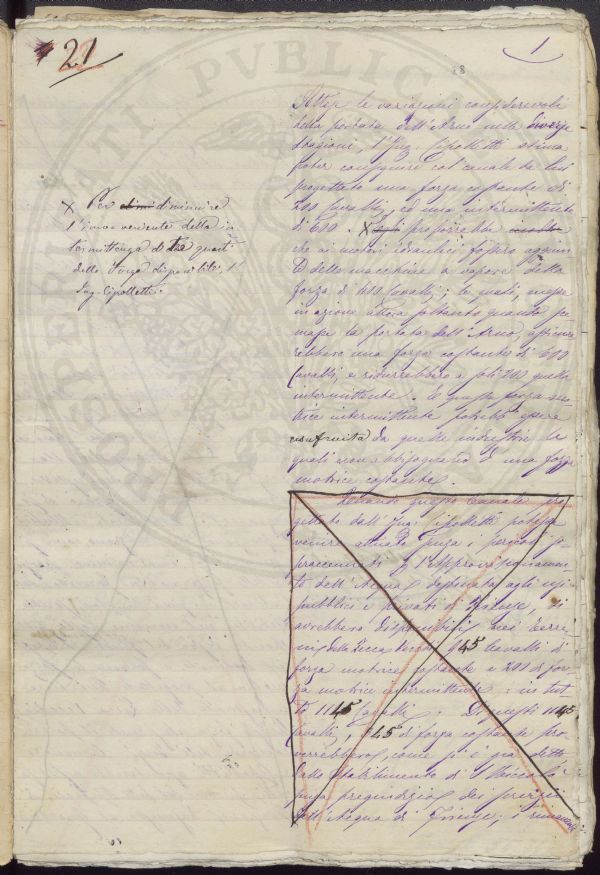 21
1
Attese le variazioni considerevoli
della portata dell'Arno nelle diverse
stagioni, l'Ing. Cipolletti stima
poter conseguire col canale da lui
progettato una forza costante di
200 Cavalli, ed una intermittente
di 600. X proporrebbe
che ai motori idraulici fossero aggiun
te delle macchine a vapore della
forza di 400 Cavalli; le quali, messe
in azione allora soltanto quando sce
masse la portata dell'Arno, assicure
rebbero una forza costante di 600
Cavalli, e ridurrebbero a soli 200 quella
intermittente. E questa forza mo
trice intermittente potrebbe essere
usufruita da quelle industrie le
quali non abbisognano d'una forza
motrice costante.
X Per diminuire
l'inconveniente della in
termittenza di tre quarti
della forza disponibile l'
Ing. Cipolletti
questo Canale pro
gettato dall'Ing. Cipolletti potesse
venire attuato senza i pericoli so
praccennati p. l'approvvigionamen
to dell'Acqua destinata agli usi
pubblici e privati di Firenze, si
avrebbero disponibili nei terre
ni della Zecca Vecchia 945 Cavalli di
forza motrice costante e 200 di for
za motrice intermittente: in tut
to 1145 Cavalli. Di questi 1145
Cavalli, 345 di forza costante pro
verrebbero, come si è già detto
dallo stabilimento di S. Niccolò
senza pregiudizio dei servizi
dell'Acqua di Firenze; i rimanenti